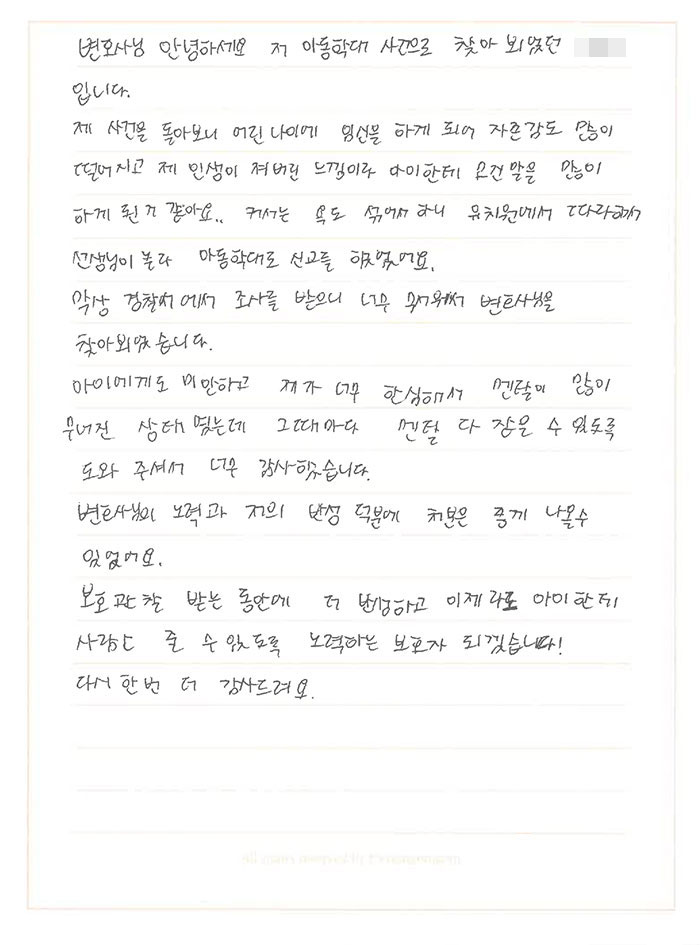 변호사님 안녕하세요 저 아동학대 사건으로 찾아 뵈었던
입니다.
제 사건을 돌아보니 어린 나이에 임신을 하게 되어 자존감도 많이
떨어지고 제 인생이 져버린 느낌이라 아이한테 모진말을 많이
하게 된거 같아요.. 커서는 욕도 섞어서 하니 유치원에서 따라해서
선생님이 놀라 아동학대로 신고를 하였었어요.
막상 경찰서에서 조사를 받으니 너무 무서워서 변호사님을
찾아뵈었습니다.
아이에게도 미안하고 제가 너무 한심해서 멘탈이 많이
무너진 상태 였는데 그때마다 멘탈 다 잡을 수 있도록
도와 주셔서 너무 감사했습니다.
변호사님의 노력과 저의 반성 덕분에 처분은 좋게 나올수
있었어요.
보호관찰 받는 동안에 더 반성하고 이제라도 아이한테
사랑만 줄 수 있도록 노력하는 보호자 되겠습니다!
다시 한번 더 감사드려요.